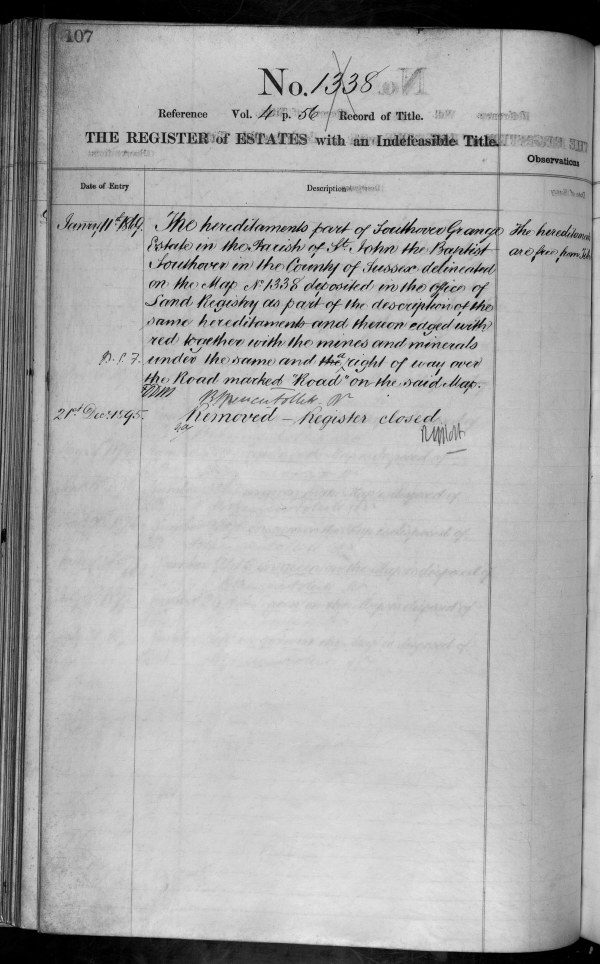 107
No. 1338
Reference Vol. 4 p. 56 Record of Title.
THE REGISTER of ESTATES with an Indefeasible Title.
Observations
Date of Entry
Description
Janry 11th 1869. The hereditaments part of Southover Grange
Estate in the Parish of St. John the Baptist
Southover in the County of Sussex delineated
on the Map No 1338 deposited in the office of
Land Registry as part of the description of the
same hereditaments and thereon edged with
red together with the mines and minerals
B.S.F. under the same and the a right of way over
the Road marked "Road" on the said Map.
The hereditam
are free from
21st Decr. 1895. Removed – Register closed